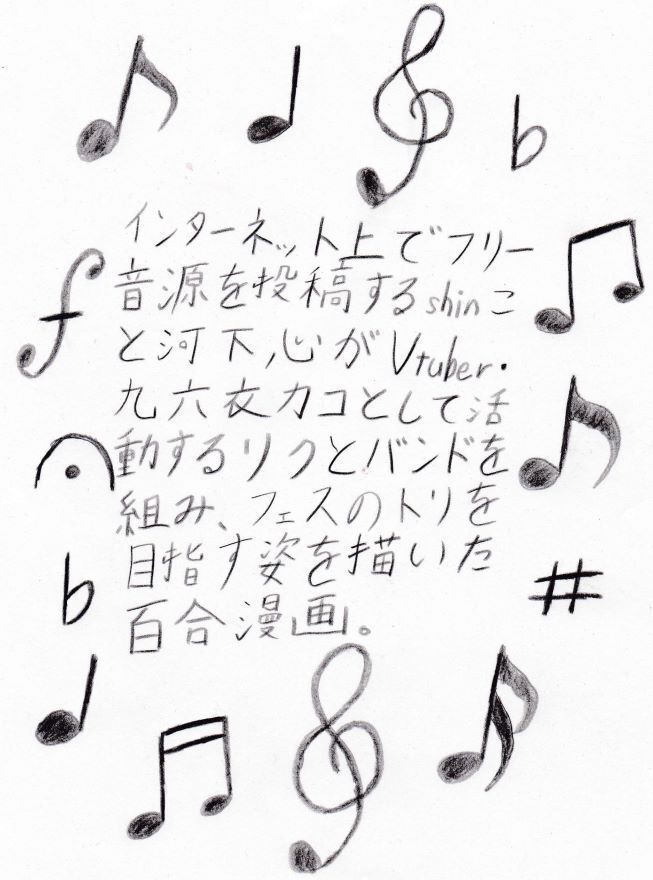 インターネット上でフリー
音源を投稿するshinこ
と河下心がVtuber・
九六衣カコとして活
動するリクとバンドを
組み、フェスのトリを
目指す姿を描いた
百合漫画。